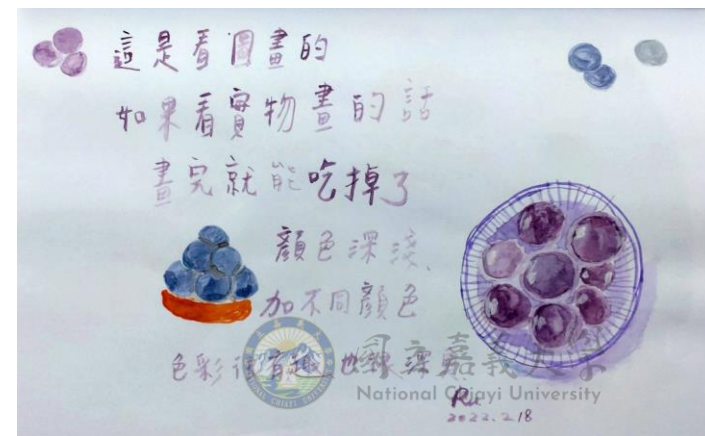 這是看圖畫的
如果看實物畫的話
畫完就能吃掉了
顏色深淺、
加不同顏色
色彩很有趣也很深奧
國立嘉義大學
National Chiayi University
Ru
2022.2.18